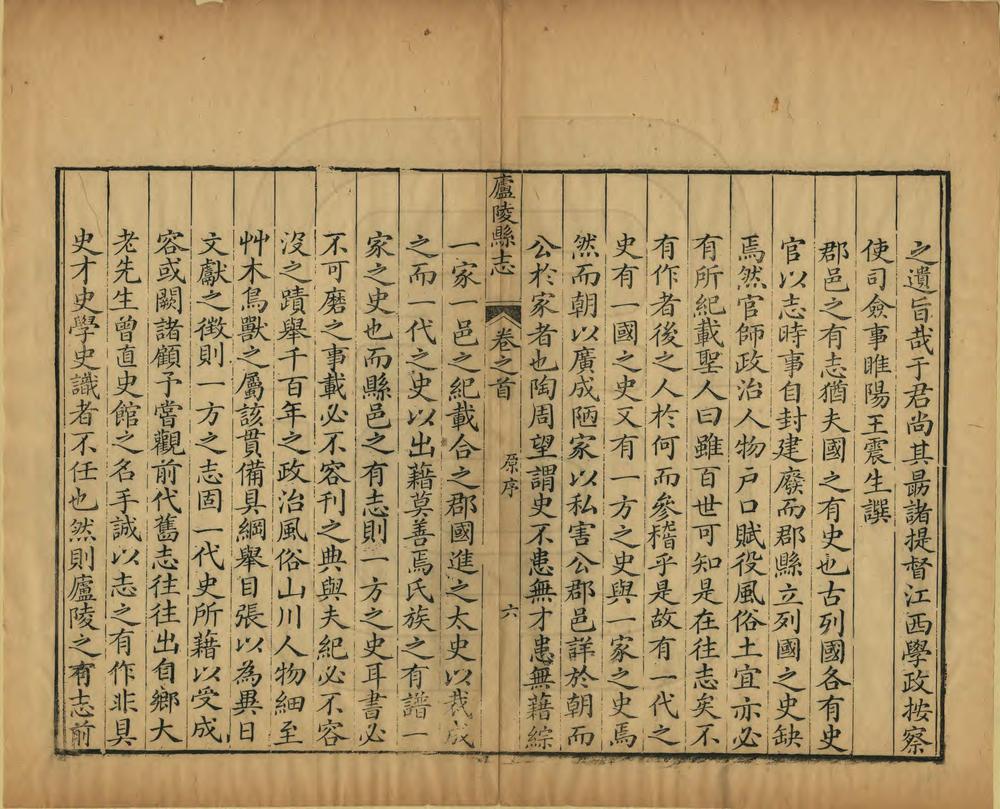 之遺旨哉于君尚其勗諸提督江西學政按察
使司僉事睢陽王震生譔
郡邑之有志猶夫國之有史也古列國各有史
官以志時事自封建廢而郡縣立列國之史缺
焉然官師政治人物戶口賦役風俗土宜亦必
有所紀載聖人曰雖百世可知是在往志矣不
有作者後之人於何而參稽乎是故有一代之
史有一國之史又有一方之史與一家之史焉
然而朝以廣成陋家以私害公郡邑詳於朝而
公於家者也陶周望謂史不患無才患無藉綜
廬陵縣志
卷之首
原序
六
一家一邑之紀載合之郡國進之太史以裁成
之而一代之史以出藉莫善焉氏族之有譜一
家之史也而縣邑之有志則一方之史耳書必
不可磨之事載必不容刊之典與夫紀必不容
沒之蹟舉千百年之政治風俗山川人物細至
艸木鳥獸之屬該貫備具綱舉目張以為異日
文獻之徵則一方之志固一代史所藉以受成
容或闕諸顧予嘗觀前代舊志往往出自鄉大
老先生曾直史館之名手誠以志之有作非具
史才史學史識者不任也然則廬陵之有志前